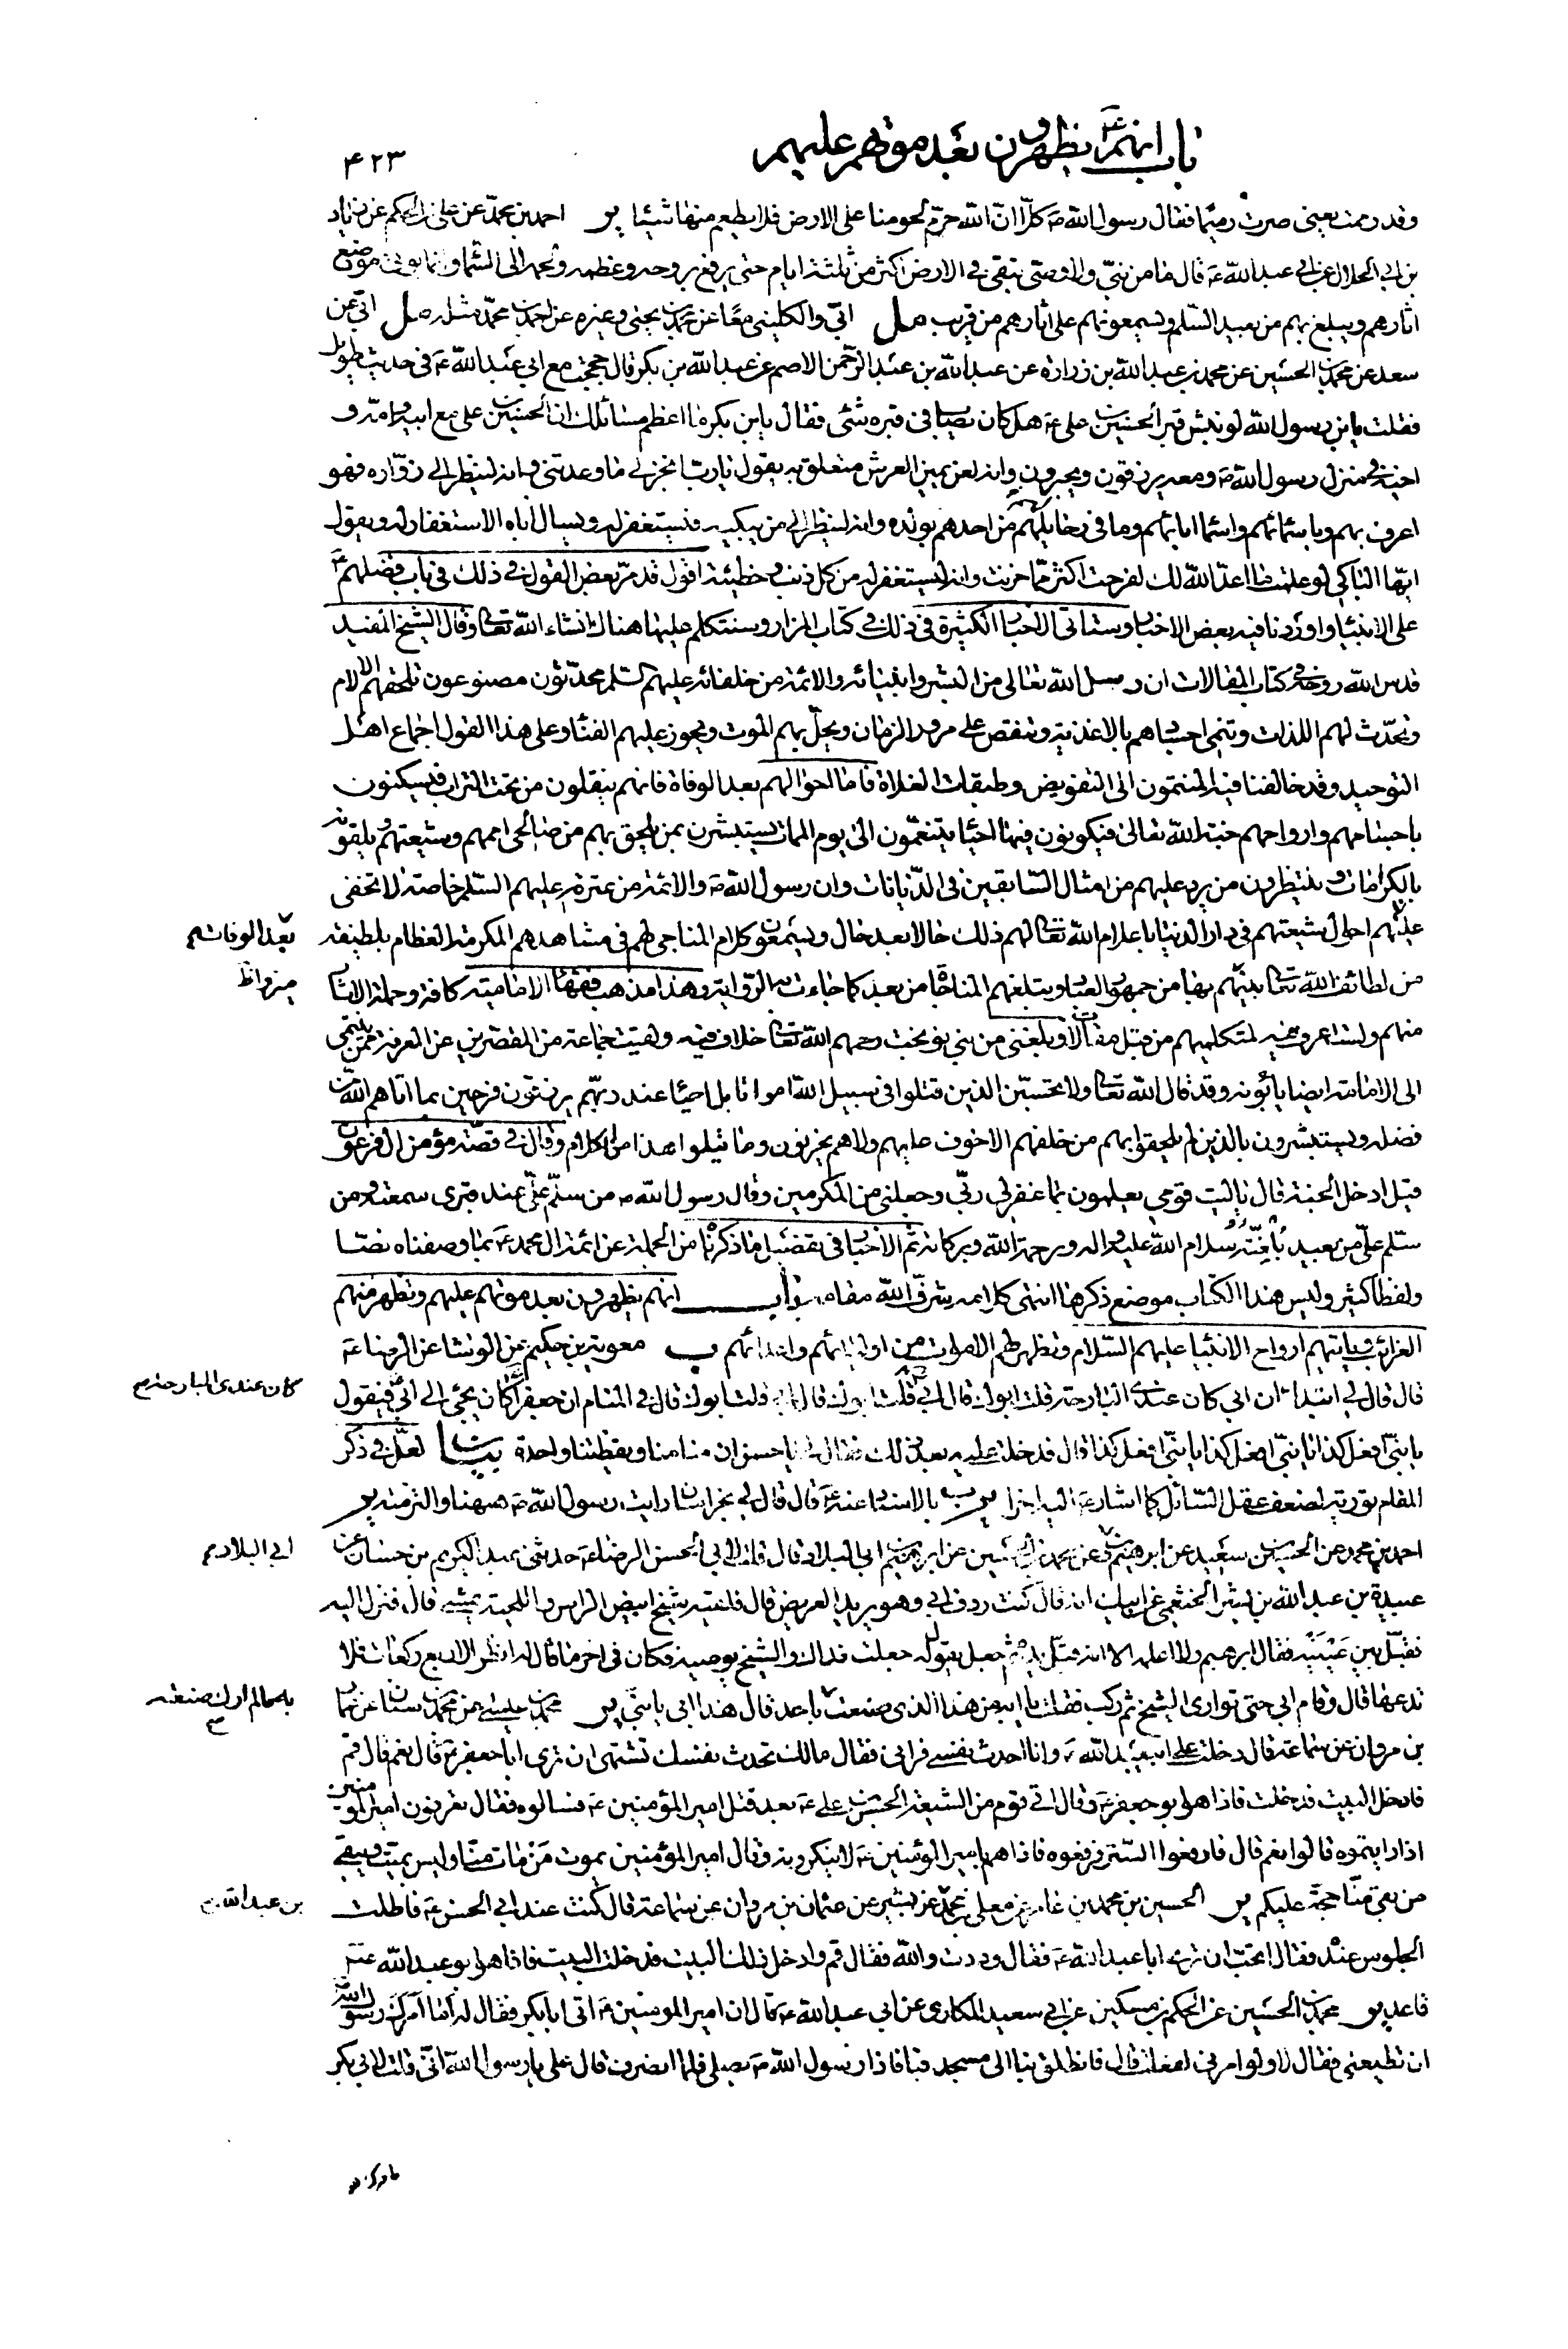 باب انهم ع يظهرون بعد موتهم عليهم
۴۲۳
وقد رممت يعنى صرت رميما فقال رسول الله ص كلا ان الله حرم لحومنا على الارض فلا يطعم منها شيئا ير احمد بن محمد عن على بن الحكم عن زياد
بن ابى الحلال عن ابى عبد الله ع قال ما من نبى ولا وصى يبقى فى الارض اكثر من ثلثة ايام حتى يرفع بروحه وعظمه ولحمه الى السماء وانما يؤتى موضع
اثارهم ويبلغ بهم من بعيد السلم ويسمعونهم على اثارهم من قريب مل ابى والكلينى معا عن محمد بن يحيى وغيره عن احمد بن محمد مثله مل ابى عن
سعد عن محمد بن الحسين عن محمد بن عبد الله بن زرارة عن عبد الله بن عبد الرحمن الاصم عن عبد الله بن بكر قال حججت مع ابى عبد الله ع فى حديث طويل
فقلت يا بن رسول الله لو نبش قبر الحسين بن على ع هل كان يصاب فى قبره شئ فقال يا بن بكر ما اعظم مسائلك ان الحسين بن على مع ابيه وامه و
اخيه فى منزل رسول الله ص ومعه يرزقون ويحبرون وانه لعن يمين العرش متعلق به يقول يا رب انجز لى ما وعدتنى وانه لينظر الى زواره فهو
اعرف بهم وباسمائهم واسماء ابائهم وما فى رحالهم من احدهم بولده وانه لينظر الى من يبكيه فيستغفر له ويسال اباه الاستغفار له ويقول
ايها الباكى لو علمت ما اعد الله لك لفرحت اكثر مما حزنت وانه ليستغفر له من كل ذنب وخطيئة اقول قد مر بعض القول فى ذلك فى باب فضلهم ع
على الانبياء واوردنا فيه بعض الاخبار وستاتى الاخبار الكثيرة فى ذلك فى كتاب المزار وسنتكلم عليها هناك انشاء الله تعالى وقال الشيخ المفيد
قدس الله روحه فى كتاب المقالات ان رسل الله تعالى من البشر وانبيائه والائمة من خلفائه عليهم السلم محدثون مصنوعون تلحقهم الالام
وتحدث لهم اللذات وتنمى اجسامهم بالاغذية وتنقص على مرور الزمان ويحل بهم الموت ويجوز عليهم الفناء وعلى هذا القول اجماع اهل
التوحيد وقد خالفنا فيه المنتمون الى التفويض وطبقات الغلاة فاما احوالهم بعد الوفاة فانهم ينقلون من تحت التراب فيسكنون
باجسامهم وارواحهم جنة الله تعالى فيكونون فيها احياء يتنعمون الى يوم الممات يستبشرون بمن يلحق بهم من صالحى اممهم وشيعتهم ويلقونه
بالكرامات وينتظرون من يرد عليهم من امثال السابقين فى الديانات وان رسول الله ص والائمة من عترته عليهم السلم خاصة لا تخفى
عليهم احوال شيعتهم فى دار الدنيا باعلام الله تعالى لهم ذلك حالا بعد حال ويسمعون كلام المناجى لهم فى مشاهدهم المكرمة العظام بلطيفة
بعد الوفات
من لطائف الله تعالى بينهم بها من جمهور العباد ويبلغهم المناجاة من بعيد كما جاءت به الرواية وهذا مذهب فقهاء الامامية كافة وحملة الاثار
منهم ولست اعرف فيه لمتكلميهم من قبل مقالا وبلغنى من بنى نوبخت رحمهم الله تعالى خلاف فيه ولقيت جماعة من المقصرين عن المعرفة ممن ينتمى
الى الامامة ايضا يابونه وقد قال الله تعالى ولا تحسبن الذين قتلوا فى سبيل الله امواتا بل احياء عند ربهم يرزقون فرحين بما اتاهم الله من
فضله ويستبشرون بالذين لم يلحقوا بهم من خلفهم الا خوف عليهم ولا هم يحزنون وما يتلوا هذا من الكلام وقال فى قصة مؤمن ال فرعون
قيل ادخل الجنة قال يا ليت قومى يعلمون بما غفر لى ربى وجعلنى من المكرمين وقال رسول الله ص من سلم على عند قبرى سمعته ومن
سلم على من بعيد بلغته سلام الله عليه واله ورحمة الله وبركاته ثم الاخبار فى تفصيل ما ذكرناه من الجملة عن ائمة ال محمد ع بما وصفناه نصا
ولفظا كثير وليس هذا الكتاب موضع ذكرها انتهى كلامه شرف الله مقامه باب انهم يظهرون بعد موتهم عليهم وتظهر منهم
الغرائب وياتيهم ارواح الانبياء عليهم السلام وتظهر لهم الاموات من اوليائهم واعدائهم ب معوية بن حكيم عن الوشا عن الرضا ع
قال قال لى ابتداء ان ابى كان عندى البارحة قلت ابوك قال ابى قلت ابوك قال ابى قلت ابوك قال فى المنام ان جعفرا كان يجئ الى ابى فيقول
كان عندى البارحة م
يا بنى افعل كذا يا بنى افعل كذا يا بنى افعل كذا قال فدخلت عليه بعد ذلك فقال لى يا حسن ان منامنا ويقظتنا واحدة بيان لعل فى ذكر
المنام تورية لضعف عقل السائل كما اشار ع اليه اخرا ب بالاسناد عنه ع قال قال لى بخراسان رايت رسول الله ص ههنا والتزمته ير
احمد بن محمد عن الحسين بن سعيد عن ابرهيم بن عن محمد بن الحسين عن ابرهيم بن ابى البلاد قال قلت لابى الحسن الرضا ع حدثنى عبد الكريم بن حسان عن
ابى البلاد م
عبيدة بن عبد الله بن بشر الخثعمى عن ابيك انه قال كنت ردف ابى وهو يريد العريض قال فلقيه شيخ ابيض الراس واللحية يمشى قال فنزل اليه
فقبل بين عينيه فقال ابرهيم ولا اعلمه الا انه قبل يده ثم جعل يقول له جعلت فداك والشيخ يوصيه فكان فى اخر ما قال له انظر الاربع ركعات فلا
تدعها قال وقام ابى حتى توارى الشيخ ثم ركب فقلت يا ابه من هذا الذى صنعت باحد قال هذا ابى يا بنى ير محمد بن عيسى عن محمد بن سنان عن عمار
به ما لم ارك صنعته م
بن مروان عن سماعة قال دخلت على ابى عبد الله ع وانا احدث نفسى فرانى فقال مالك تحدث نفسك تشتهى ان ترى ابا جعفر ع قال نعم قال قم
فادخل البيت فدخلت فاذا هو ابو جعفر ع وقال اتى قوم من الشيعة الحسن بن على ع بعد قتل امير المؤمنين ع فسالوه فقال تعرفون امير المؤمنين
اذا رايتموه قالوا نعم قال فارفعوا الستر فرفعوه فاذا هم بامير المؤمنين ع لا ينكرونه وقال امير المؤمنين يموت من مات منا وليس بميت ويبقى
من بقى منا حجة عليكم ير الحسين بن محمد بن عامر عن معلى بن محمد عن بشير عن عثمان بن مروان عن سماعة قال كنت عند ابى الحسن ع فاطلت
بن عبد الله
الجلوس عنده فقال اتحب ان ترى ابا عبد الله ع فقال وددت والله فقال قم وادخل ذلك البيت فدخلت البيت فاذا هو ابو عبد الله ع
قاعد ير محمد بن الحسين عن الحكم بن مسكين عن ابى سعيد المكارى عن ابى عبد الله ع قال ان امير المومنين ع اتى ابا بكر فقال له اما امرك رسول الله
ان تطيعنى فقال لا ولو امرنى لفعلت قال فانطلق بنا الى مسجد قبا فاذا رسول الله ص يصلى فلما انصرف قال على يا رسول الله انى قلت لابى بكر